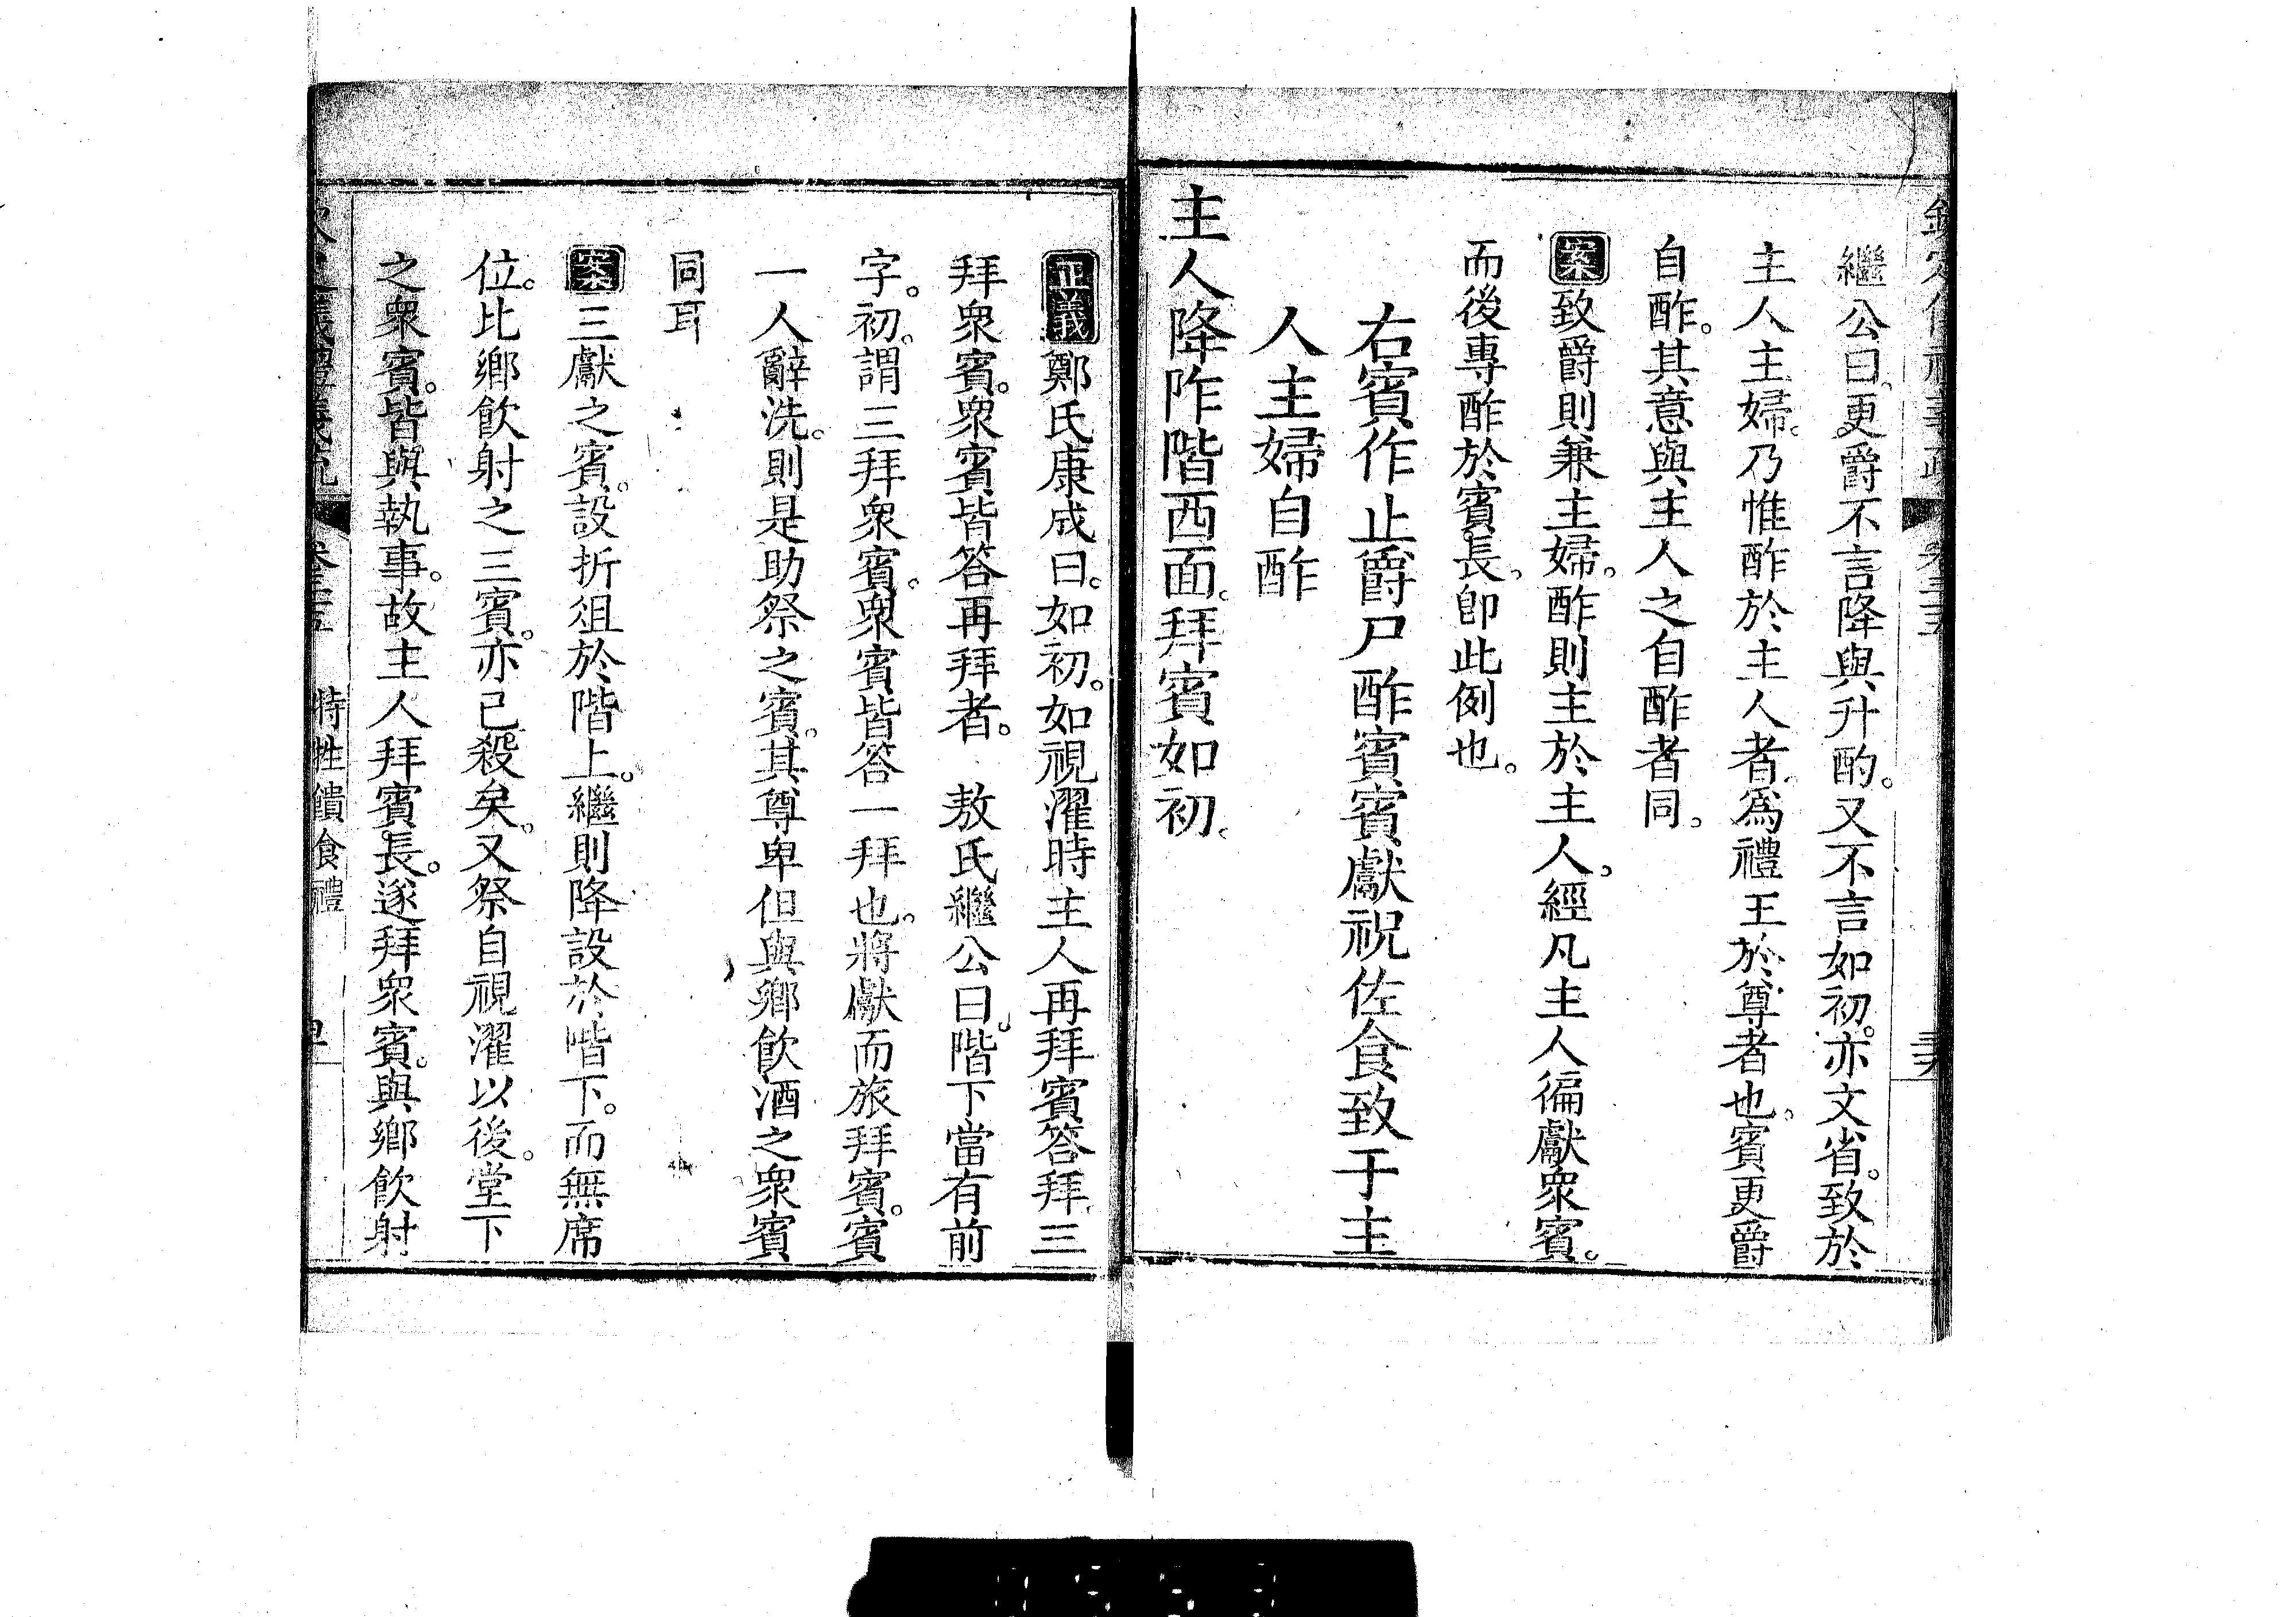 繼公曰更爵不言降與升酌。又不言如初。亦文省。致於
主人主婦。乃惟酢於主人者。爲禮王於尊者也。賓更爵
自酢。其意與主人之自酢者同。
案致爵則兼主婦。酢則主於主人。經凡主人徧獻衆賓。
而後專酢於賓長。卽此例也。
右賓作止爵尸酢賓賓獻祝佐食致于主
人主婦自酢
主人降阼階西面。拜賓如初。
正義鄭氏康成曰。如初。如視濯時主人再拜賓答拜三
拜衆賓。衆賓皆答再拜者。 敖氏繼公曰。階下當有前
字。初。謂三拜衆賓。衆賓皆答一拜也。將獻而旅拜賓。賓
一人辭洗。則是助祭之賓。其尊卑但與鄉飲酒之衆賓
同耳
案三獻之賓。設折俎於階上。繼則降設於階下。而無席
位。比鄉飲射之三賓。亦已殺矣。又祭自視濯以後。堂下
之衆賓。皆與執事。故主人拜賓長。遂拜衆賓。與鄉飲射
特牲饋食禮